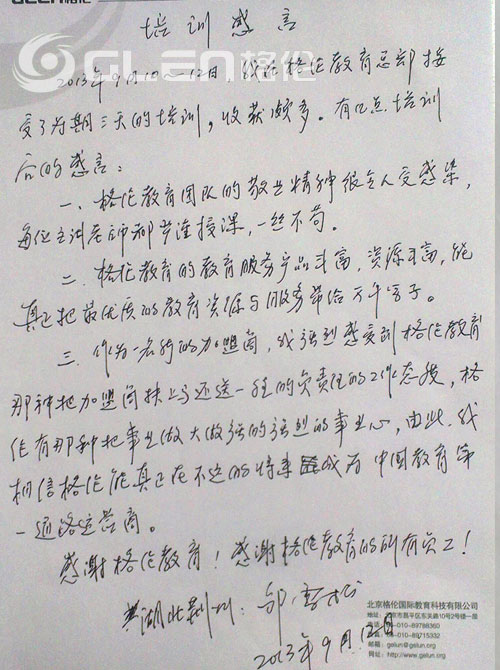 GLEN格伦
GLEN格伦
培训感言
2013年9月10—12日 我在格伦教育总部接
受了为期三天的培训，收获颇多。有几点培训
后的感言：
一、格伦教育团队的敬业精神很令人受感染，
每位主讲老师都严谨授课，一丝不苟。
二、格伦教育的教育服务产品丰富，资源丰富，能
真正把最优质的教育资源与服务带给万千学子。
三、作为一名新的加盟商，我强烈感受到格伦教育
那种把加盟商扶上马还送一程的负责任的工作态度，格
伦有那种把事业做大做强的强烈的事业心，由此，我
相信格伦能真正在不远的将来成为中国教育第
一通路运营商。
感谢格伦教育！感谢格伦教育的所有员工！
湖北荆州：
2013年9月12日
北京格伦国际教育科技有限公司
地址：北京市昌平区东关路10号2号楼一层
-010-89788360
-010-89715332
邮件：gelun@gelun.org
网址：http://www.gelun.org